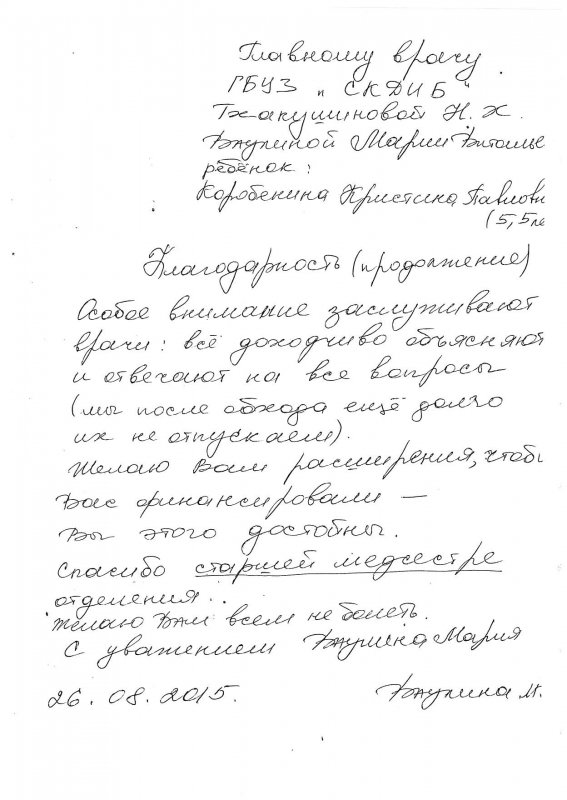 Главному врачу
ГБУЗ „СКДИБ"
Тхакушиновой Н. Х.
Марии
ребёнок:
Коробенина Кристина Павлов
(5,5 ле
Благодарность (продолжение)
Особое внимание заслуживают
врачи: всё доходчиво объясняют
и отвечают на все вопросы
(мы после обхода ещё долго
их не отпускаем).
Желаю Вам расширения, чтоб
Вас финансировали —
Вы этого достойны.
Спасибо старшей медсестре
отделения..
Желаю Вам всем не болеть.
С уважением Мария
26.08.2015. М.